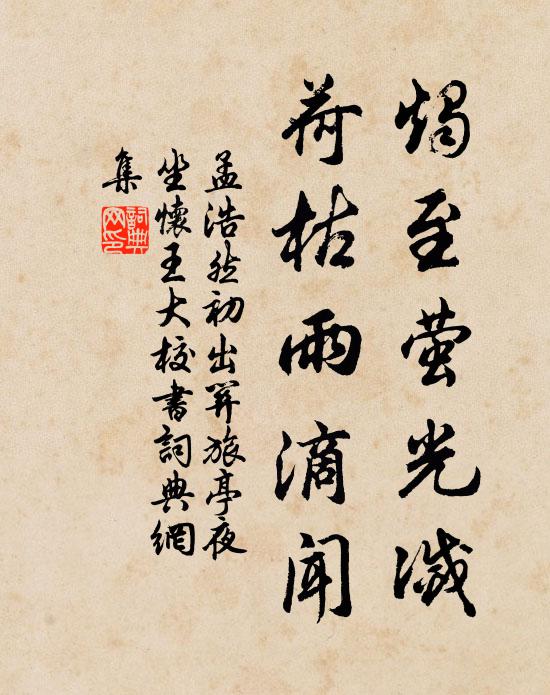 燭至萤光滅
荷枯雨滴聞
孟浩然初出関旅亭夜
坐懷王大校書詞典網
集
詞典
网印